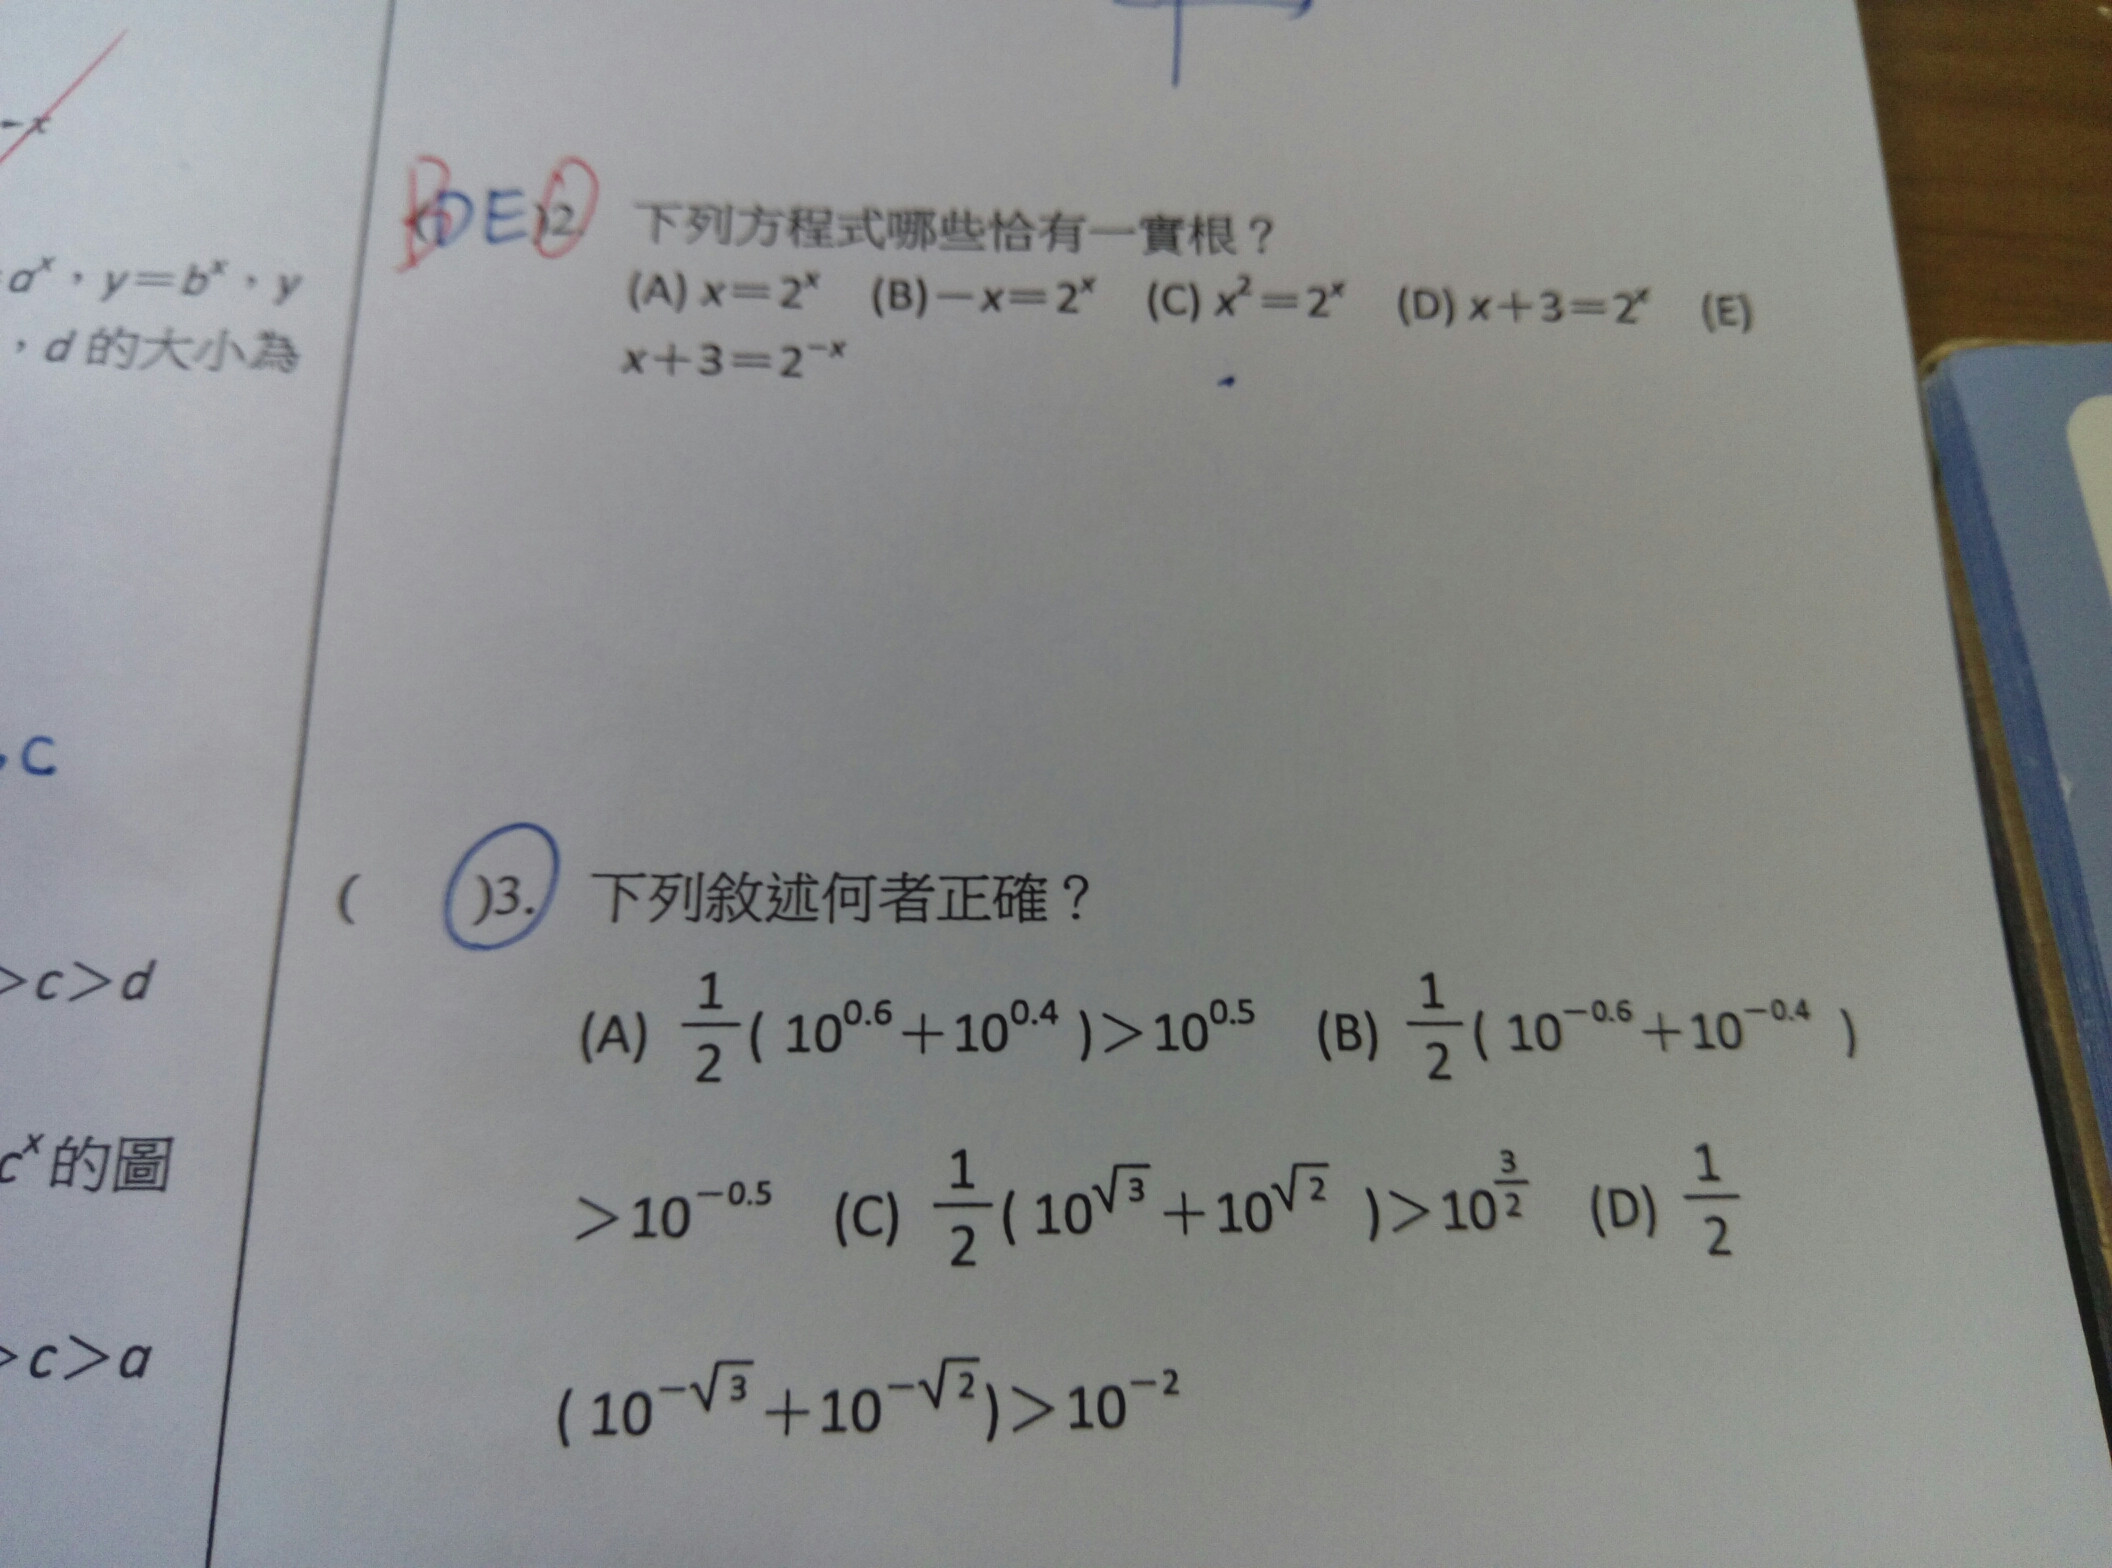 －x
aˣ，y＝bˣ，y
，d 的大小為
C
＞c＞d
cˣ 的圖
＞c＞a
BDE )2. 下列方程式哪些恰有一實根？
(A) x＝2ˣ (B)－x＝2ˣ (C) x²＝2ˣ (D) x＋3＝2ˣ (E)
x＋3＝2⁻ˣ
( )3. 下列敘述何者正確？
(A) 1/2 ( 10^0.6＋10^0.4 )＞10^0.5 (B) 1/2 ( 10^－0.6＋10^－0.4 )
＞10^－0.5 (C) 1/2 ( 10^√3＋10^√2 )＞10^3/2 (D) 1/2
( 10^－√3＋10^－√2 )＞10^－2